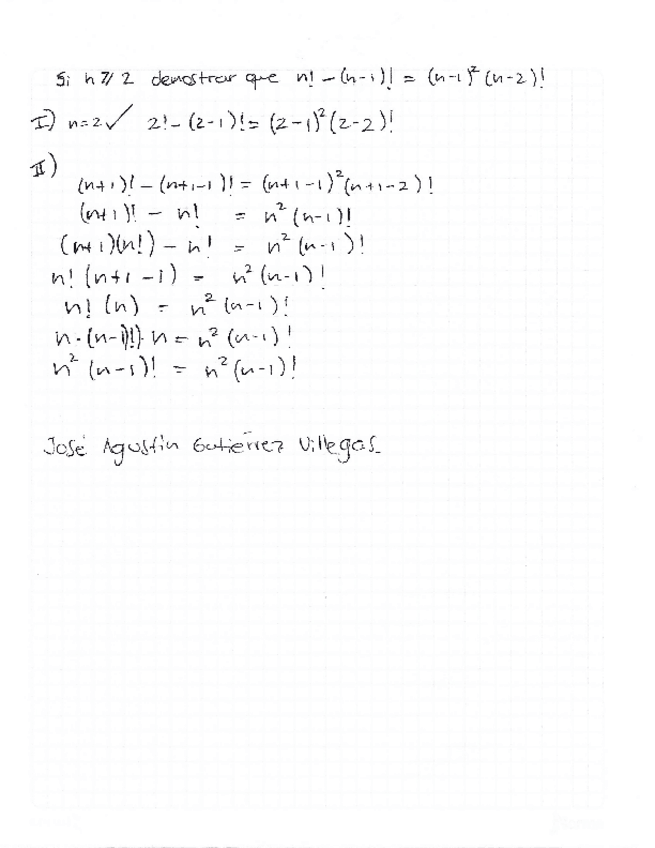 Si n ≥ 2 demostrar que n! - (n-1)! = (n-1)² (n-2)!
I) n=2 ✓ 2! - (2-1)! = (2-1)² (2-2)!
II)
(n+1)! - (n+1-1)! = (n+1-1)² (n+1-2)!
(n+1)! - n! = n² (n-1)!
(n+1)(n!) - n! = n² (n-1)!
n! (n+1-1) = n² (n-1)!
n! (n) = n² (n-1)!
n · (n-1)!) · n = n² (n-1)!
n² (n-1)! = n² (n-1)!
José Agustín Gutiérrez Villegas.